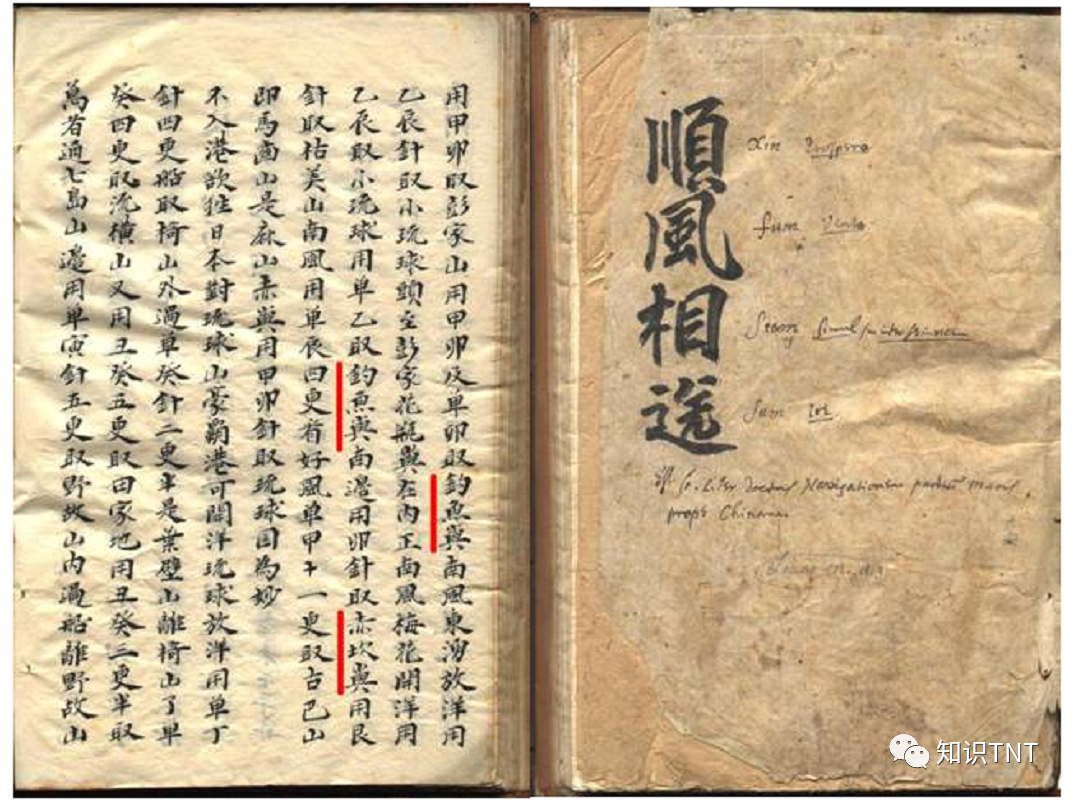 用甲卯取彭家山用甲卯及单卯取釣魚嶼南風東湧放洋用
乙辰針取小琉球頭至彭家花瓶嶼在内正南風梅花開洋用
乙辰取小琉球用单乙取釣魚嶼南邊用卯針取赤坎嶼用艮
針取枯美山南風用单辰四更看好風单甲十一更取古巴山
即馬齒山是麻山赤嶼用甲卯針取琉球国為妙
不入港欲往日本對琉球山豪霸港可開洋琉球放洋用单丁
針四更船取椅山外過单癸針二更半是葉壁山離椅山了单
癸四更取流横山又用丑癸五更取田家地用丑癸三更半取
萬者通七島山邊用单寅針五更取野故山内過船離野故山
順風相送
Xin prospero
fum vento
Seam
Sum
prope Chinam
知识TNT